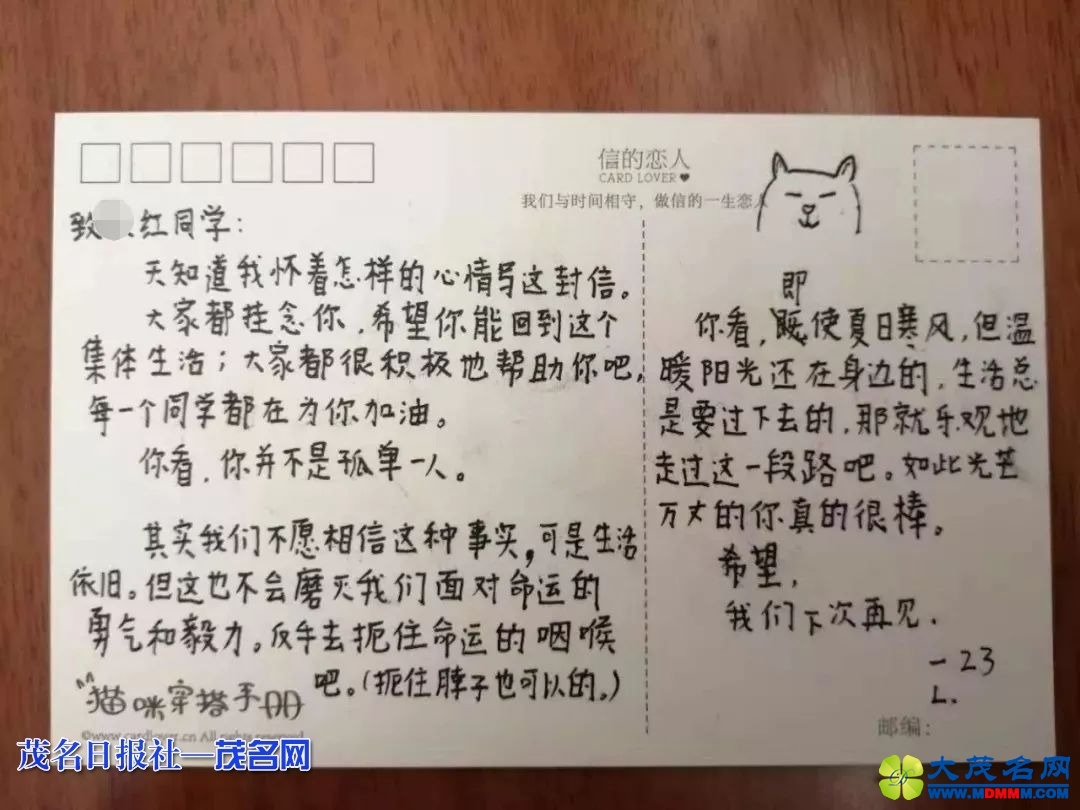 信的恋人
CARD LOVER
我们与时间相守，做信的一生恋人
致 红同学：
天知道我怀着怎样的心情写这封信。
大家都挂念你，希望你能回到这个
集体生活；大家都很积极地帮助你吧，
每一个同学都在为你加油。
你看，你并不是孤单一人。
其实我们不愿相信这种事实，可是生活
依旧。但这也不会磨灭我们面对命运的
勇气和毅力。反手去扼住命运的咽喉
吧。（扼住脖子也可以的。）
猫咪穿搭手册
©www.cardlover.cn All rights reserved
即
你看，既使夏日寒风，但温
暖阳光还在身边的，生活总
是要过下去的，那就乐观地
走过这一段路吧。如此光芒
万丈的你真的很棒。
希望，
我们下次再见.
-23
L.
邮编：
茂名日报社—茂名网
大茂名网
WWW.MDMMM.COM